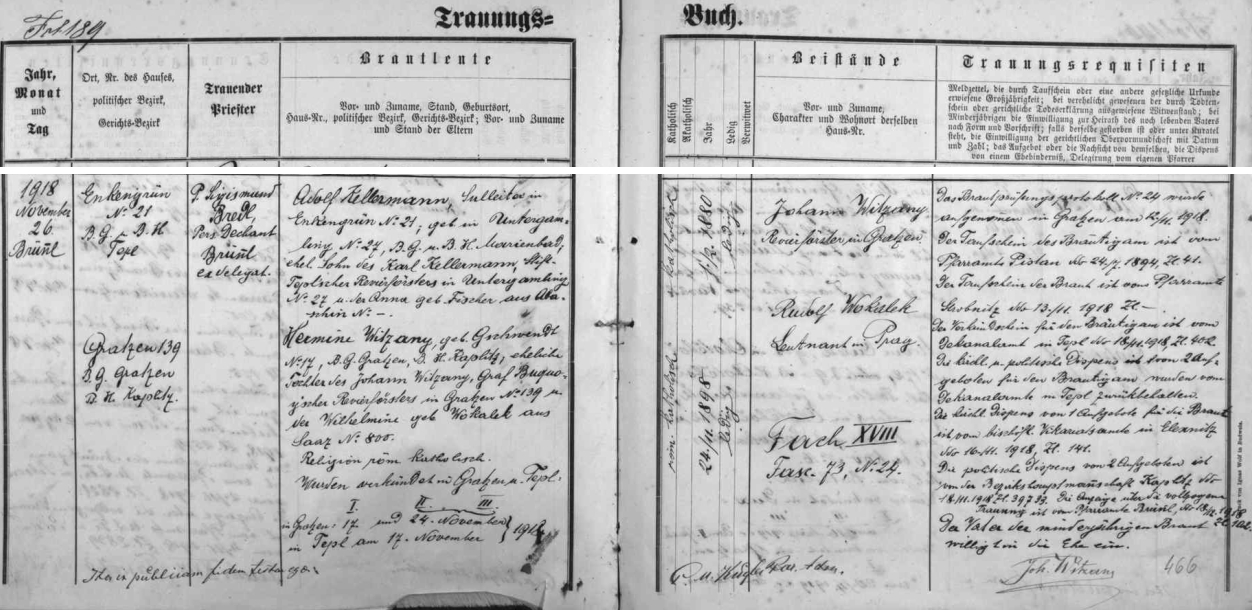 Fol 189
Trauungs=
Buch.
Jahr,
Monat
und
Tag
Ort, Nr. des Hauses,
politischer Bezirk,
Gerichts-Bezirk
Trauender
Priester
Brautleute
Vor- und Zuname, Stand, Geburtsort,
Haus-Nr., politischer Bezirk, Gerichts-Bezirk; Vor- und Zuname
und Stand der Eltern
Katholisch
Akatholisch
Jahr
Ledig
Verwitwet
Beistände
Vor- und Zuname,
Charakter und Wohnort derselben
Haus-Nr.
Trauungsrequisiten
Meldzettel, die durch Taufschein oder eine andere gesetzliche Urkunde
erwiesene Großjährigkeit; bei verehelicht gewesenen der durch Todten-
schein oder gerichtliche Todeserklärung ausgewiesene Witwenstand; bei
Minderjährigen die Einwilligung zur Heirath des noch lebenden Vaters
nach Form und Vorschrift; falls derselbe gestorben ist oder unter Kuratel
steht, die Einwilligung der gerichtlichen Obervormundschaft mit Datum
und Zahl; das Aufgebot oder die Nachsicht von demselben, die Dispens
von einem Ehehinderniß, Delegirung vom eigenen Pfarrer
1918
November
26.
Brünl
Enkengrün
No 21
B. G. B. H.
Tepl
P. Sigismund
Bredl,
Pers. Dechant
Brünl
ex delegat.
Adolf Kellermann, in
Enkengrün No 21, geb. in Untergam-
ling No 27, B. G. u. B. H. Marienbad,
ehel. Sohn des Karl Kellermann, Stift-
Teplscher Revierförsters in Untergamling
No 27 u. der Anna geb. Fischer aus Aba-
schin No –.
Gratzen 139
B. G. Gratzen
B. H. Kaplitz.
Hermine Witzany, geb. Gschwendt
No 14, B. G. Gratzen, B. H. Kaplitz, eheliche
Tochter des Johann Witzany, Graf Buquo-
y'scher Revierförsters in Gratzen No 139 u.
der Wilhelmine geb. Wokalek aus
Saaz No 800.
Religion röm. katholisch.
Wurden verkündet in Gratzen u. Tepl:
I. II. III.
in Gratzen: 17. und 24. November
in Tepl am 17. November } 1918
röm. katholisch
1880
ledig
röm. katholisch
24/11. 1898
ledig
Johann Witzany
Revierförster in Gratzen
Rudolf Wokalek
Leutnant in Prag.
Fach XVIII
Fasc. 73, No 24.
Das Brautprüfungsprotokoll No 24 wurde
aufgenomen in Gratzen am 12/11. 1918.
Der Taufschein des Bräutigam ist vom
Pfarramte Pistau dto 24/7. 1894, Zl. 41.
Der Taufschein der Braut ist vom Pfarramte
Strobnitz dto 13/11. 1918 Zl –
Der Verkündschein für den Bräutigam ist vom
Dekanalamt in Tepl dto 18/11. 1918, Zl. 402.
Die kirchl. u. politische Dispens ist von 2 Auf-
geboten für den Bräutigam wurden vom
Dekanalamte in Tepl zurückbehalten.
Die kirchl. Dispens von 1 Aufgebote für die Braut
ist vom bischöfl. Vikariatsamte in
dto 16/11. 1918, Zl. 141.
Die politische Dispens von 2 Aufgeboten ist
von der Bezirkshauptmannschaft Kaplitz dto
18/11. 1918 Zl. 39739. Die Anzeige über die vollzogene
Trauung ist vom Pfarramte Brünl, dto 1918
Der Vater der minderjährigen Braut
willigt in die Ehe ein.
Joh. Witzany
466